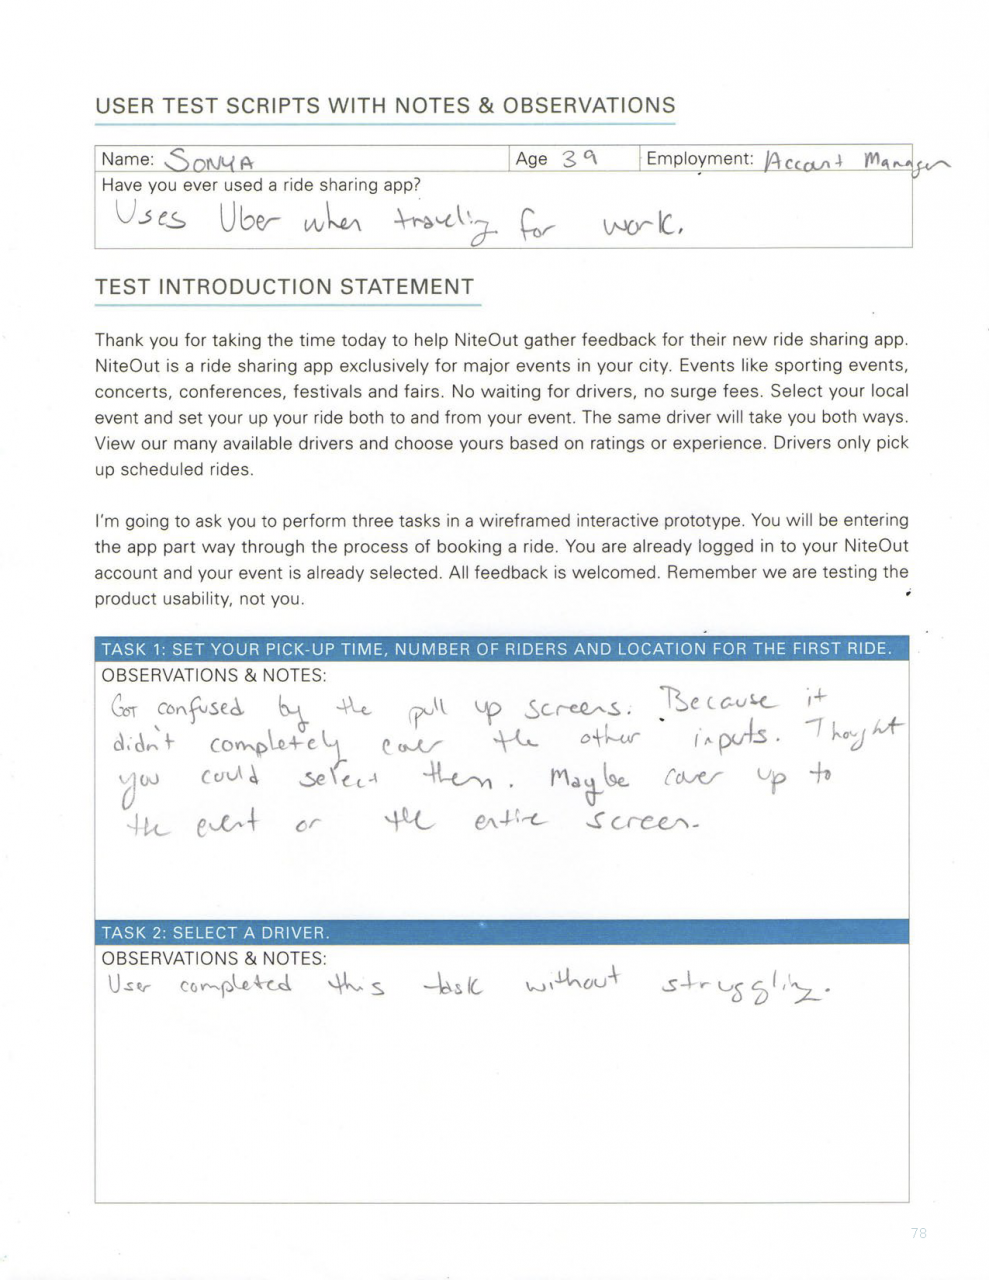 USER TEST SCRIPTS WITH NOTES & OBSERVATIONS
Name: SONYA Age 39 Employment: Accont Manager
Have you ever used a ride sharing app?
Uses Uber when traveling for work.
TEST INTRODUCTION STATEMENT
Thank you for taking the time today to help NiteOut gather feedback for their new ride sharing app.
NiteOut is a ride sharing app exclusively for major events in your city. Events like sporting events,
concerts, conferences, festivals and fairs. No waiting for drivers, no surge fees. Select your local
event and set your up your ride both to and from your event. The same driver will take you both ways.
View our many available drivers and choose yours based on ratings or experience. Drivers only pick
up scheduled rides.
I'm going to ask you to perform three tasks in a wireframed interactive prototype. You will be entering
the app part way through the process of booking a ride. You are already logged in to your NiteOut
account and your event is already selected. All feedback is welcomed. Remember we are testing the
product usability, not you.
TASK 1: SET YOUR PICK-UP TIME, NUMBER OF RIDERS AND LOCATION FOR THE FIRST RIDE.
OBSERVATIONS & NOTES:
Got confused by the pull up screens. Because it
didn't completely cover the other inputs. Thought
you could select them. Maybe cover up to
the event or the entire screen.
TASK 2: SELECT A DRIVER.
OBSERVATIONS & NOTES:
User completed this task without struggling.
78